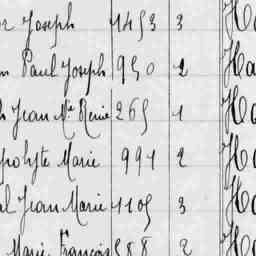 or Joseph 1453 3 Ha
n Paul Joseph 950 2 Ha
h Jean Mie René 265 1 Ha
polyte Marie 991 2 Ha
al Jean Marie 1105 3 Ha
Marie François 588 2 Ha